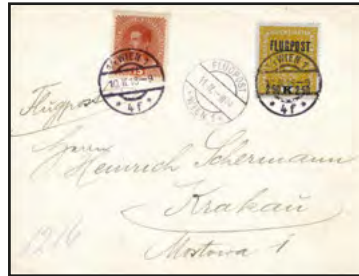 15
FLUGPOST
1 * WIEN 1
4f
FLUGPOST
WIEN 1
FLUGPOST
1 * WIEN 1
2·50 K 2·50
4f
Flugpost
Herrn
Heinrich Schermann
Krakau
Mostowa 1
1216